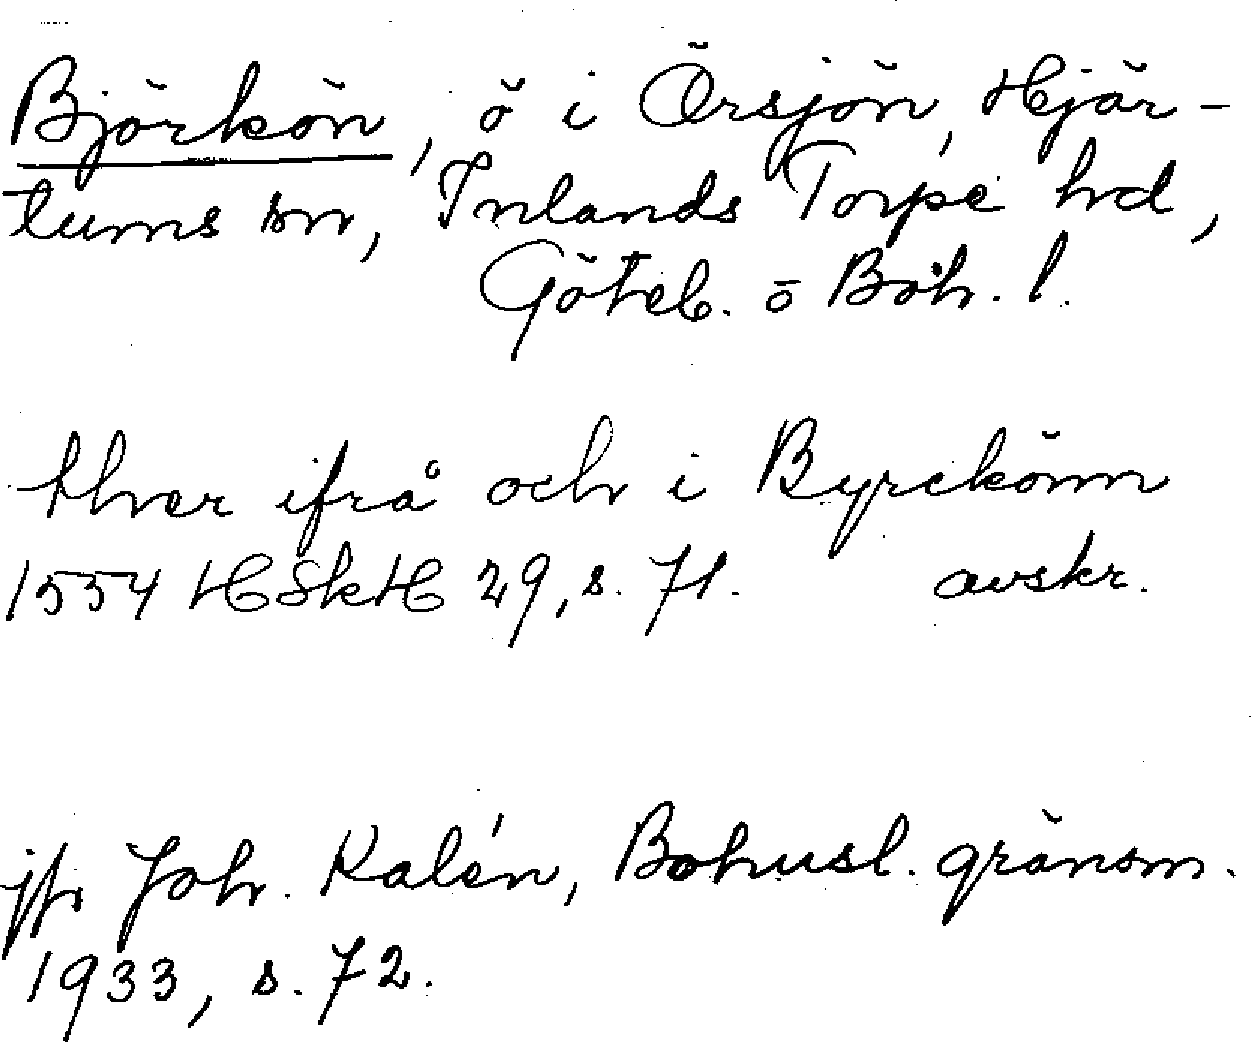 Björkön, ö i Örsjön, Hjär-
tums sn, Inlands Torpe hd,
Göteb. o Boh. l.
thver ifrå och i Byrekönn
1554 HSkH 29, s. 71. avskr.
jfr Joh. Kalén, Bohusl. gränsm.
1933, s. 72.